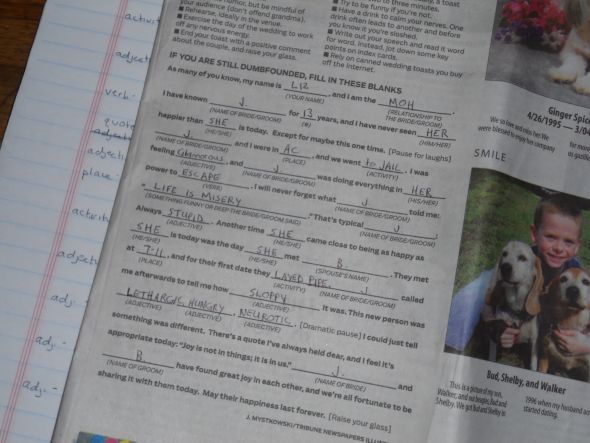 activit
adject
verb -
quote
adjecti
adjecti
place -
activit
adject
adj. -
adj. -
adj. -
humor, but be mindful of
your audience (don't offend grandma).
■ Rehearse, ideally in the venue.
■ Exercise the day of the wedding to work
off any nervous energy.
■ End your toast with a positive comment
about the couple, and raise your glass.
a toast
to three minutes.
■ Try to be funny if you're not.
■ Have a drink to calm your nerves. One
drink often leads to another and before
you know it you're sloshed.
■ Write out your speech and read it word
for word. Instead, jot down some key
points on index cards.
■ Rely on canned wedding toasts you buy
off the Internet.
IF YOU ARE STILL DUMBFOUNDED, FILL IN THESE BLANKS
As many of you know, my name is LIZ, and I am the MOH.
(YOUR NAME) (RELATIONSHIP TO THE BRIDE/GROOM)
I have known J. for 13 years, and I have never seen HER
(NAME OF BRIDE/GROOM) (#) (HIM/HER)
happier than SHE is today. Except for maybe this one time. [Pause for laughs]
(HE/SHE)
J. and I were in AC, and we went to JAIL. I was
(NAME OF BRIDE/GROOM) (PLACE) (ACTIVITY)
feeling, and J. was doing everything in HER
(ADJECTIVE) (NAME OF BRIDE/GROOM) (HIS/HER)
power to ESCAPE. I will never forget what J. told me:
(VERB) (NAME OF BRIDE/GROOM)
"LIFE IS MISERY." That's typical J.;
(SOMETHING FUNNY OR DEEP THE BRIDE/GROOM SAID) (NAME OF BRIDE/GROOM)
Always STUPID. Another time SHE came close to being as happy as
(ADJECTIVE) (HE/SHE)
SHE is today was the day SHE met B. They met
(HE/SHE) (HE/SHE) (SPOUSE'S NAME)
at 7-11, and for their first date they LAYED PIPE. J. called
(PLACE) (ACTIVITY) (NAME OF BRIDE/GROOM)
me afterwards to tell me how SLOPPY it was. This new person was
(ADJECTIVE)
LETHARGIC, HUNGRY, NEUROTIC. [Dramatic pause] I could just tell
(ADJECTIVE) (ADJECTIVE) (ADJECTIVE)
something was different. There's a quote I've always held dear, and I feel it's
appropriate today: "Joy is not in things; it is in us." J. and
(NAME OF BRIDE)
B have found great joy in each other, and we're all fortunate to be
(NAME OF GROOM)
sharing it with them today. May their happiness last forever. [Raise your glass]
J. MYSTKOWSKI/TRIBUNE NEWSPAPERS
Ginger Spic
4/26/1995 — 3/04
We so love and miss her. We
were blessed to enjoy her company
for more
us
SMILE
Bud, Shelby, and Walker
This is a picture of my son,
Walker, and our beagles Bud and
Shelby. We got Bud and Shelby in
1996 when my husband an
started dating.